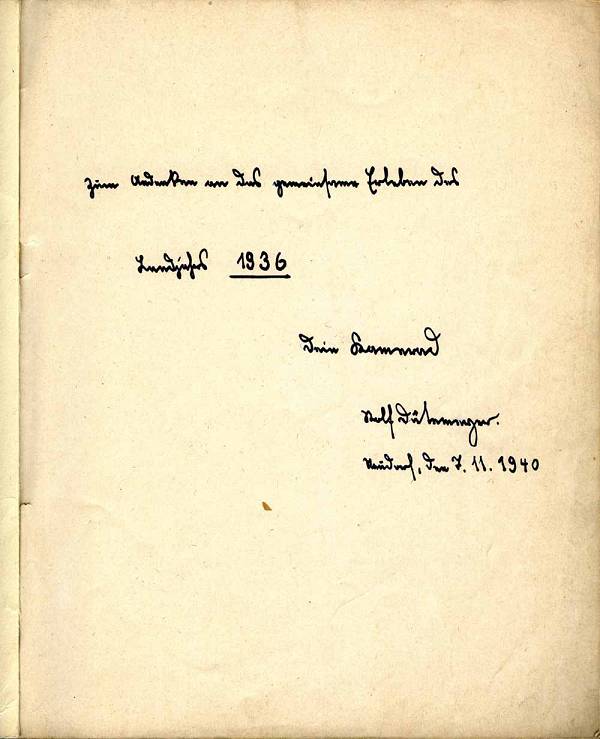 Zum Andenken an das gemeinsame Erleben des
Landjahrs 1936
Dein Kamerad
Rolf
den 7. 11. 1940